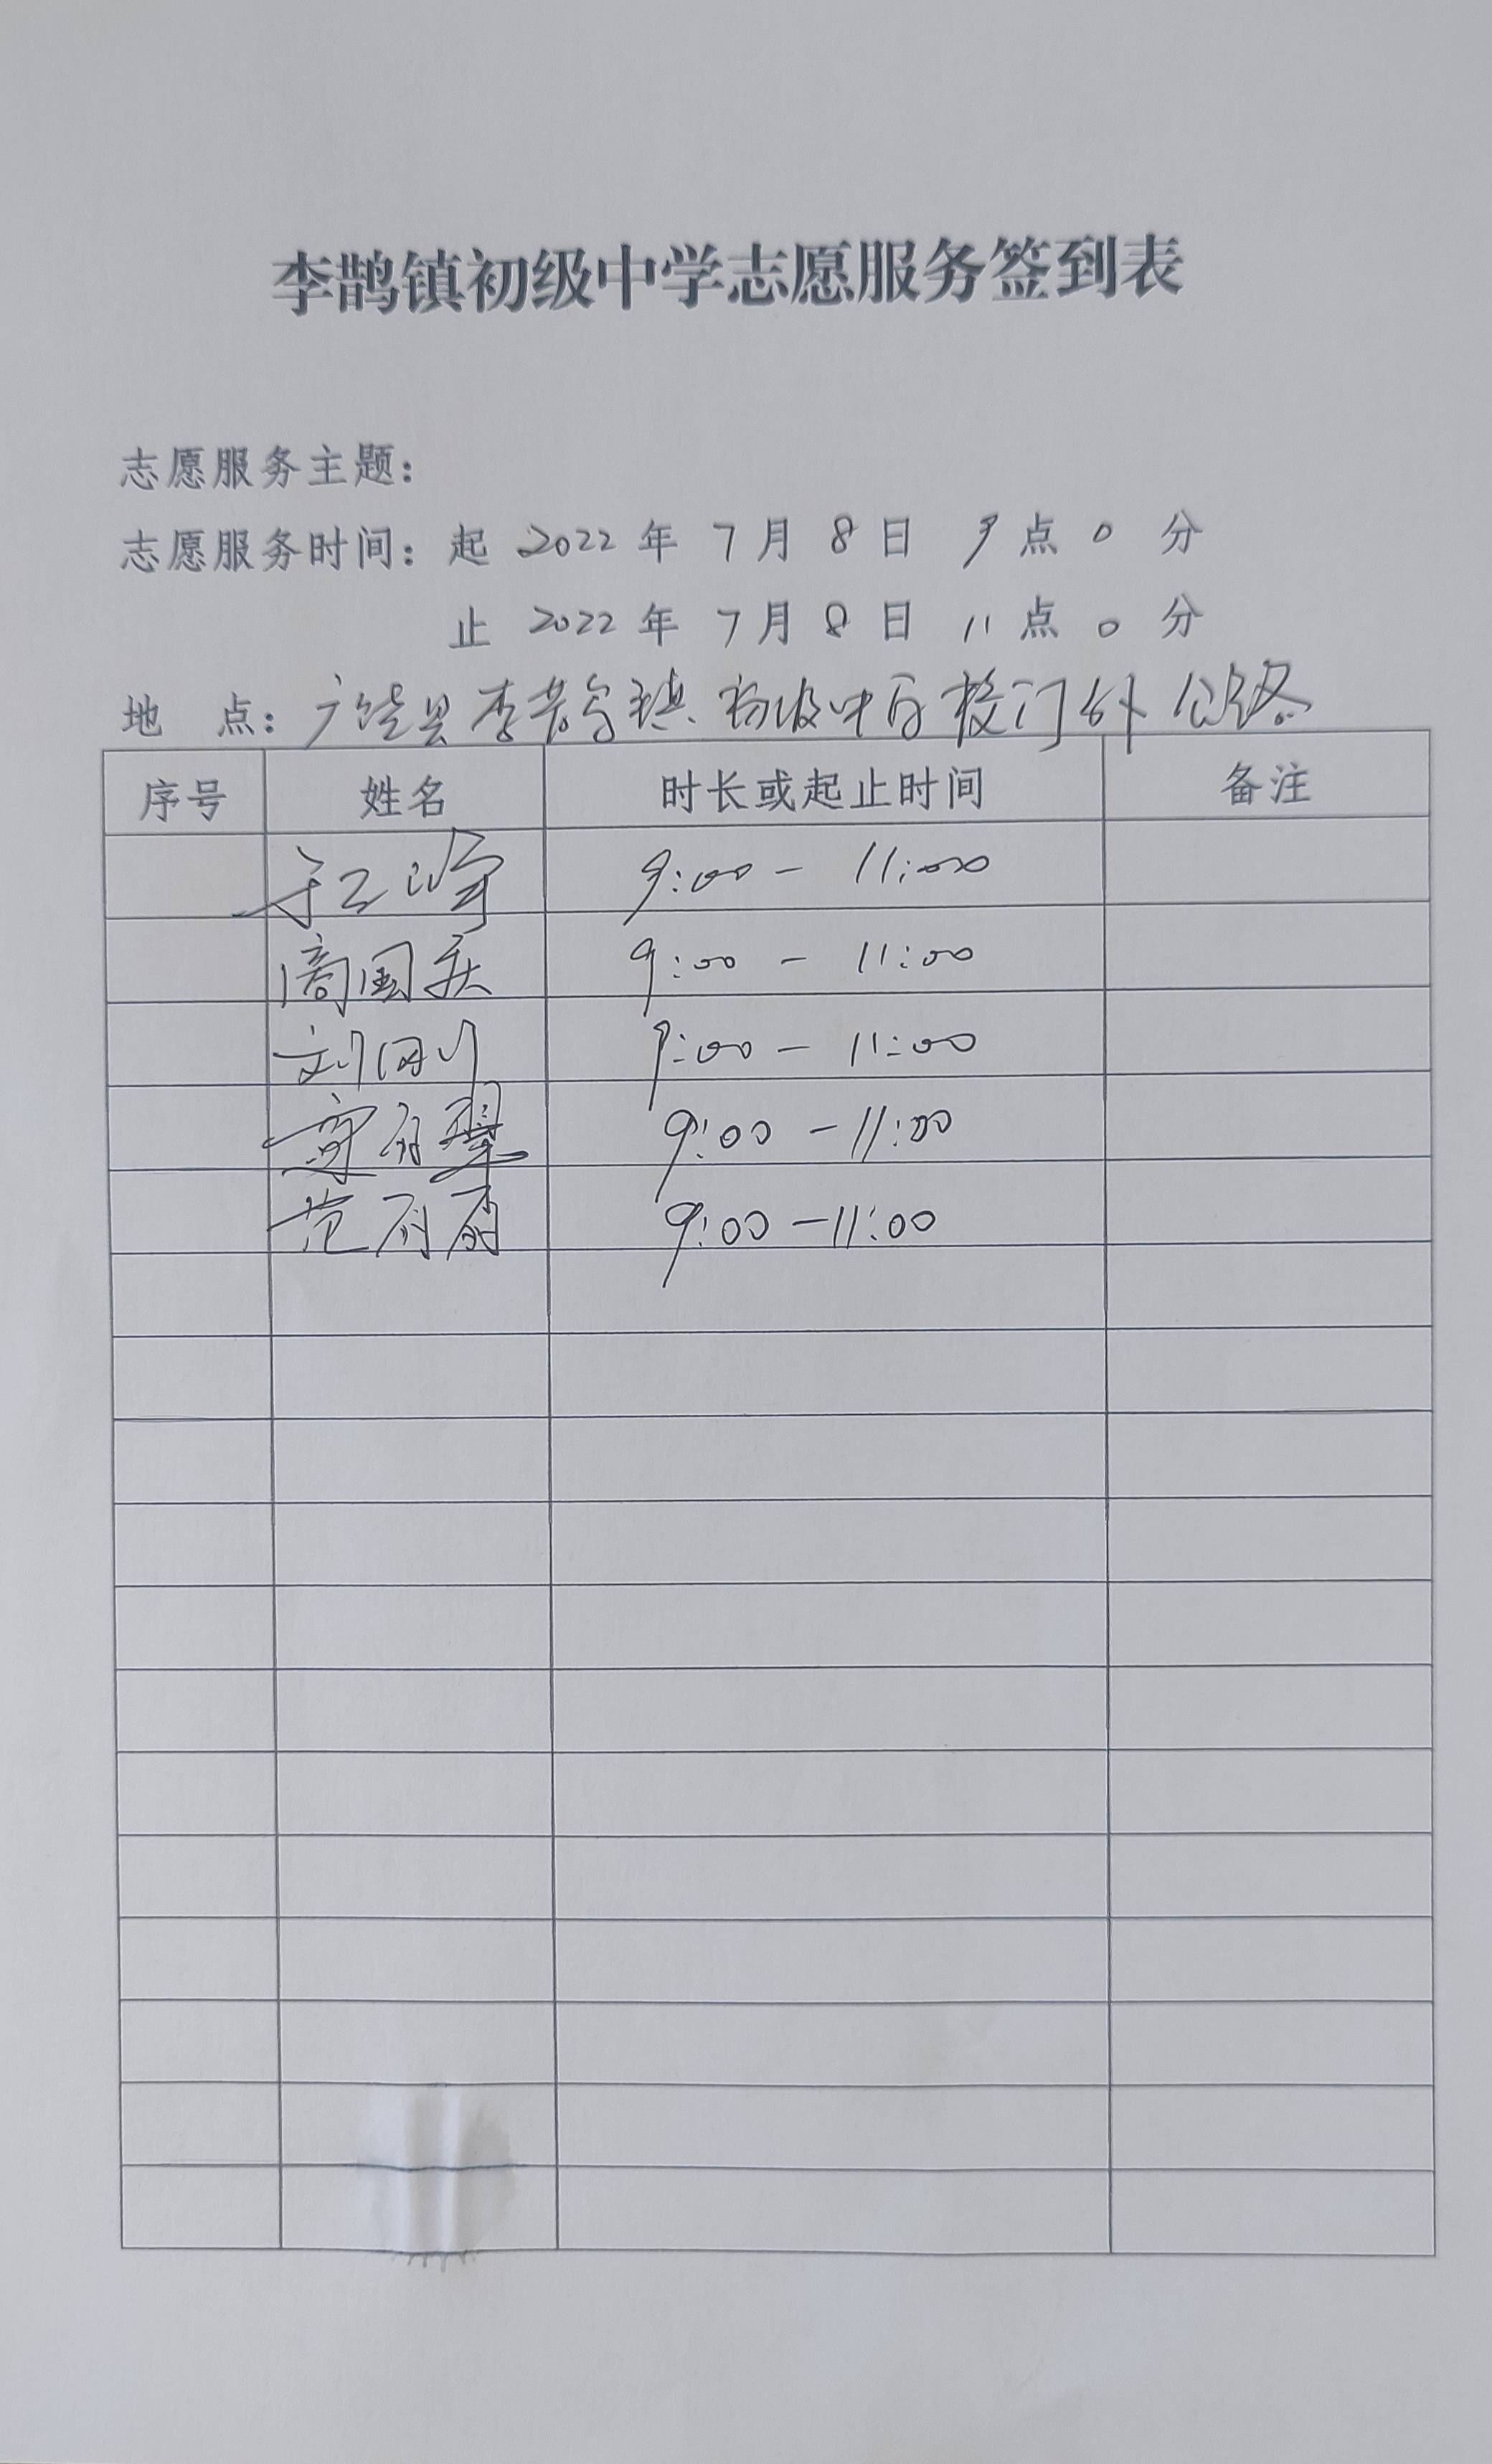 李鹊镇初级中学志愿服务签到表
志愿服务主题：
志愿服务时间：起 2022 年 7 月 8 日 9 点 0 分
止 2022 年 7 月 8 日 11 点 0 分
地 点：广饶县李鹊镇初级中学校门外公路
序号 姓名 时长或起止时间 备注
9:00 - 11:00
商国庆 9:00 - 11:00
刘国 9:00 - 11:00
9:00 - 11:00
范丽丽 9:00 - 11:00